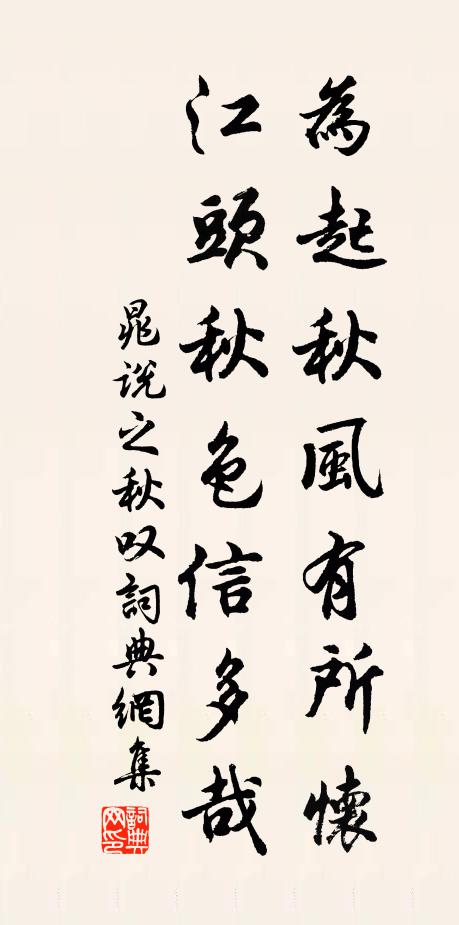 為起秋風有所懷
江頭秋色信多哉
晁説之秋叹詞典網集
詞典网印